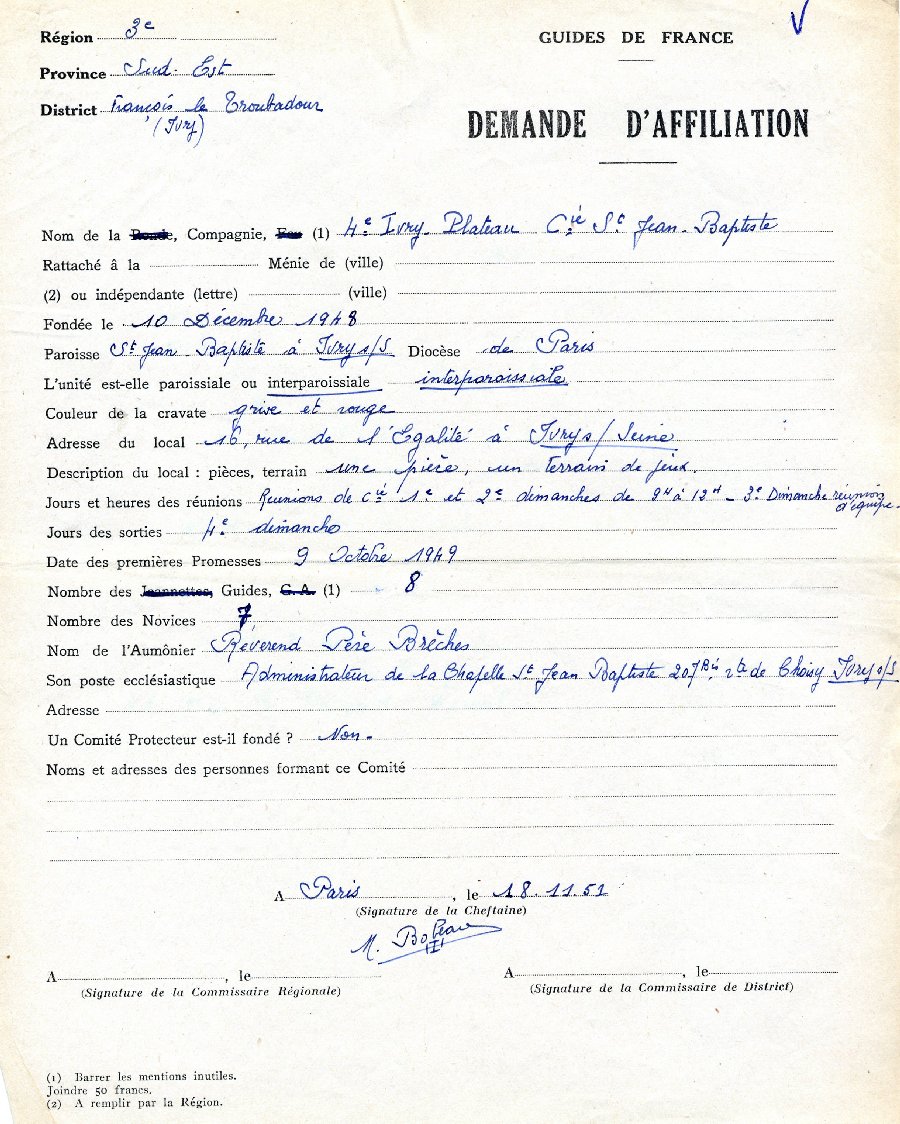 Région 3e
GUIDES DE FRANCE
Province Sud. Est
District François le Troubadour
(Ivry)
DEMANDE D'AFFILIATION
Nom de la Ronde, Compagnie, Feu (1) 4e Ivry. Plateau Cie St Jean-Baptiste
Rattaché à la Ménie de (ville)
(2) ou indépendante (lettre) (ville)
Fondée le 10 Décembre 1948
Paroisse St Jean-Baptiste à Ivry s/S Diocèse de Paris
L'unité est-elle paroissiale ou interparoissiale interparoissiale
Couleur de la cravate grise et rouge
Adresse du local 16, rue de l'Egalité à Ivry s/Seine
Description du local : pièces, terrain une pièce, un terrain de jeux.
Jours et heures des réunions Réunions de Cie 1e et 2e dimanches de 9H à 12H - 3e Dimanche réunion
d'équipe.
Jours des sorties 4e dimanche
Date des premières Promesses 9 Octobre 1949
Nombre des Jeannettes, Guides, G.A. (1) 8
Nombre des Novices 7
Nom de l'Aumônier Révérend Père Brêches
Son poste ecclésiastique Administrateur de la Chapelle St Jean Baptiste 207bis, rte de Choisy Ivry s/S
Adresse
Un Comité Protecteur est-il fondé ? Non.
Noms et adresses des personnes formant ce Comité
A Paris, le 18.11.51
(Signature de la Cheftaine)
M.
A , le
A , le
(Signature de la Commissaire Régionale)
(Signature de la Commissaire de District)
(1) Barrer les mentions inutiles.
Joindre 50 francs.
(2) A remplir par la Région.